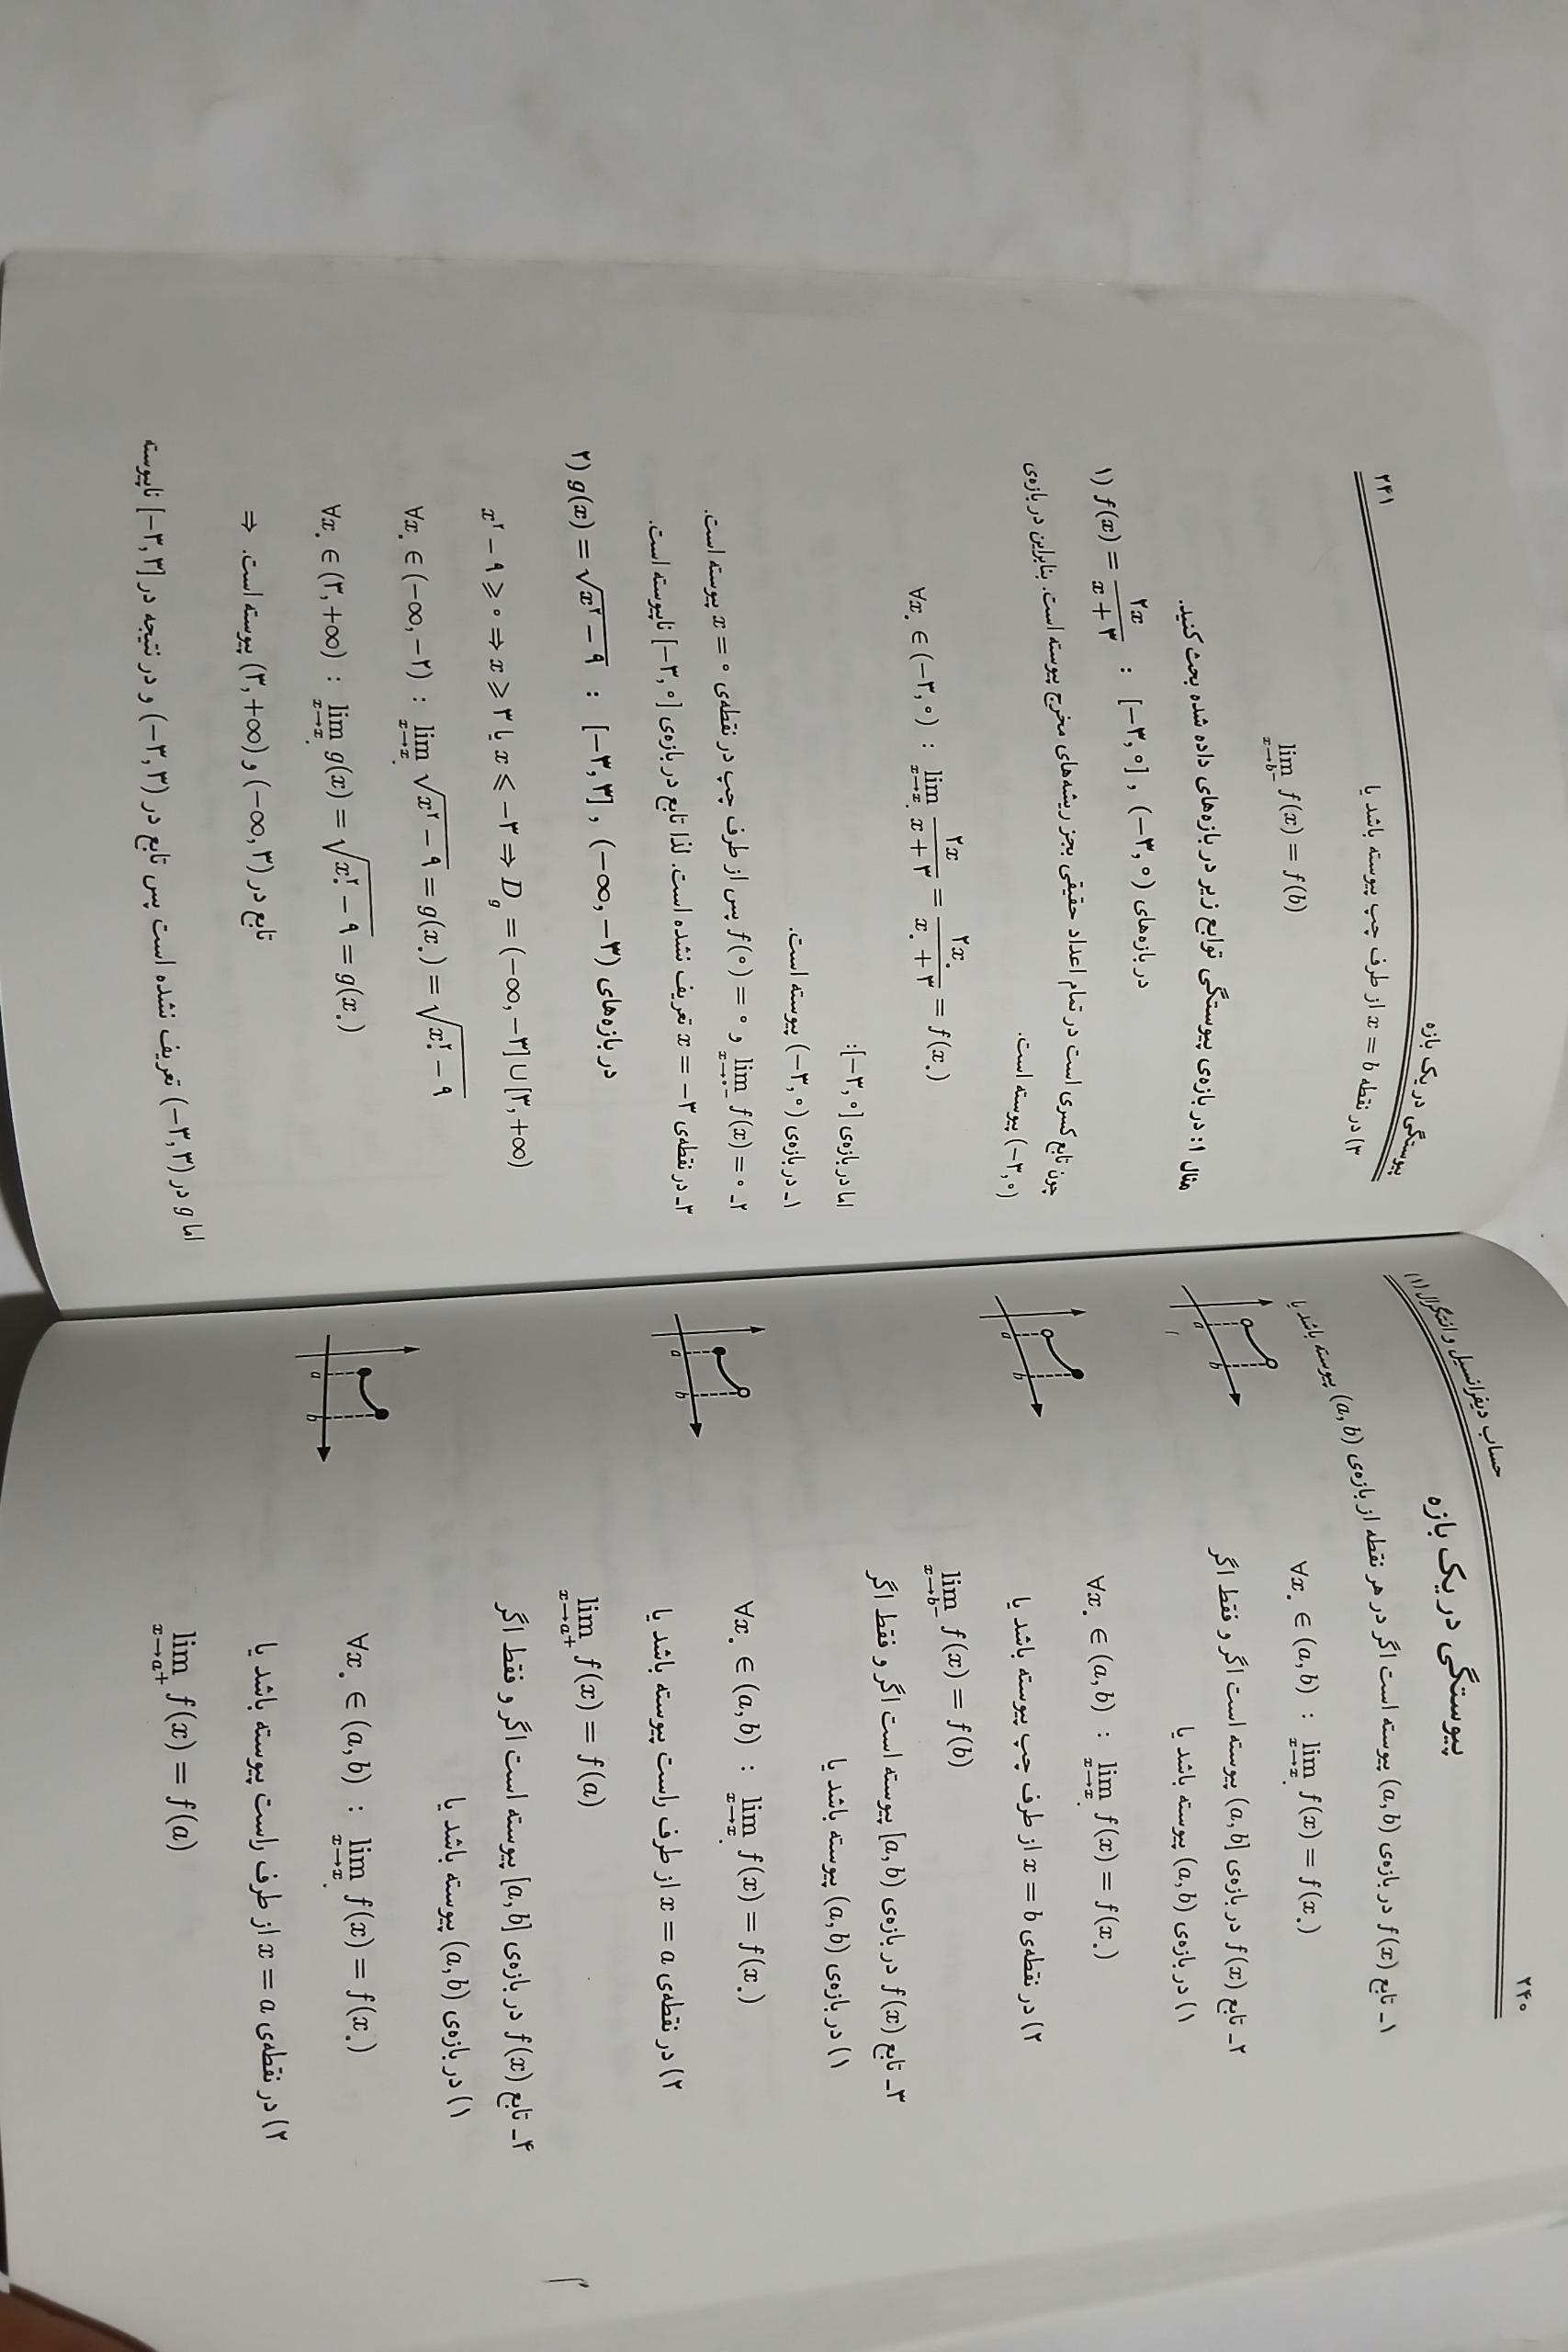 ۲۴۰
حساب دیفرانسیل و انتگرال (۱)
پیوستگی در یک بازه
۱ـ تابع f(x) در بازه‌ی (a,b) پیوسته است اگر در هر نقطه از بازه‌ی (a,b) پیوسته باشد یا
∀x. ∈ (a,b) : lim x→x. f(x) = f(x.)
۲ـ تابع f(x) در بازه‌ی (a,b] پیوسته است اگر و فقط اگر
۱) در بازه‌ی (a,b) پیوسته باشد یا
a b
∀x. ∈ (a,b) : lim x→x. f(x) = f(x.)
۲) در نقطه‌ی x = b از طرف چپ پیوسته باشد یا
a b
lim x→b⁻ f(x) = f(b)
۳ـ تابع f(x) در بازه‌ی [a,b) پیوسته است اگر و فقط اگر
۱) در بازه‌ی (a,b) پیوسته باشد یا
∀x. ∈ (a,b) : lim x→x. f(x) = f(x.)
۲) در نقطه‌ی x = a از طرف راست پیوسته باشد یا
a b
lim x→a⁺ f(x) = f(a)
۴ـ تابع f(x) در بازه‌ی [a,b] پیوسته است اگر و فقط اگر
۱) در بازه‌ی (a,b) پیوسته باشد یا
∀x. ∈ (a,b) : lim x→x. f(x) = f(x.)
a b
۲) در نقطه‌ی x = a از طرف راست پیوسته باشد یا
lim x→a⁺ f(x) = f(a)
پیوستگی در یک بازه
۲۴۱
۳) در نقطه x = b از طرف چپ پیوسته باشد یا
lim x→b⁻ f(x) = f(b)
مثال ۱: در بازه‌ی پیوستگی توابع زیر در بازه‌های داده شده بحث کنید.
۱) f(x) = ۲x / (x + ۳) : [−۳,۰] , (−۳,۰) در بازه‌های
چون تابع کسری است در تمام اعداد حقیقی بجز ریشه‌های مخرج پیوسته است. بنابراین در بازه‌ی
(−۳,۰) پیوسته است.
∀x. ∈ (−۳,۰) : lim x→x. ۲x / (x + ۳) = ۲x. / (x. + ۳) = f(x.)
اما در بازه‌ی [−۳,۰]:
۱ـ در بازه‌ی (−۳,۰) پیوسته است.
۲ـ lim x→۰⁻ f(x) = ۰ و f(۰) = ۰ پس از طرف چپ در نقطه‌ی x = ۰ پیوسته است.
۳ـ در نقطه‌ی x = −۳ تعریف نشده است. لذا تابع در بازه‌ی [−۳,۰] ناپیوسته است.
۲) g(x) = √(x² − ۹) : [−۳,۳] , (−∞,−۳) در بازه‌های
x² − ۹ ⩾ ۰ ⇒ x ⩾ ۳ یا x ⩽ −۳ ⇒ D_g = (−∞,−۳] ∪ [۳,+∞)
∀x. ∈ (−∞,−۲) : lim x→x. √(x² − ۹) = g(x.) = √(x.² − ۹)
∀x. ∈ (۳,+∞) : lim x→x. g(x) = √(x.² − ۹) = g(x.)
⇒ تابع در (−∞,۳) و (۳,+∞) پیوسته است.
اما g در (−۳,۳) تعریف نشده است پس تابع در (−۳,۳) و در نتیجه در [−۳,۳] ناپیوسته